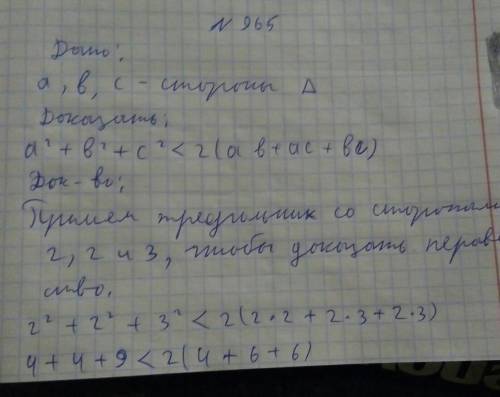 N 965
Дано:
a, в, c - стороны Δ
Доказать:
a² + в² + c² < 2(aв + ac + вc)
Док-во:
Примем треугольник со сторонам
2, 2 и 3, чтобы доказать нерав
ство.
2² + 2² + 3² < 2(2·2 + 2·3 + 2·3)
4 + 4 + 9 < 2(4 + 6 + 6)